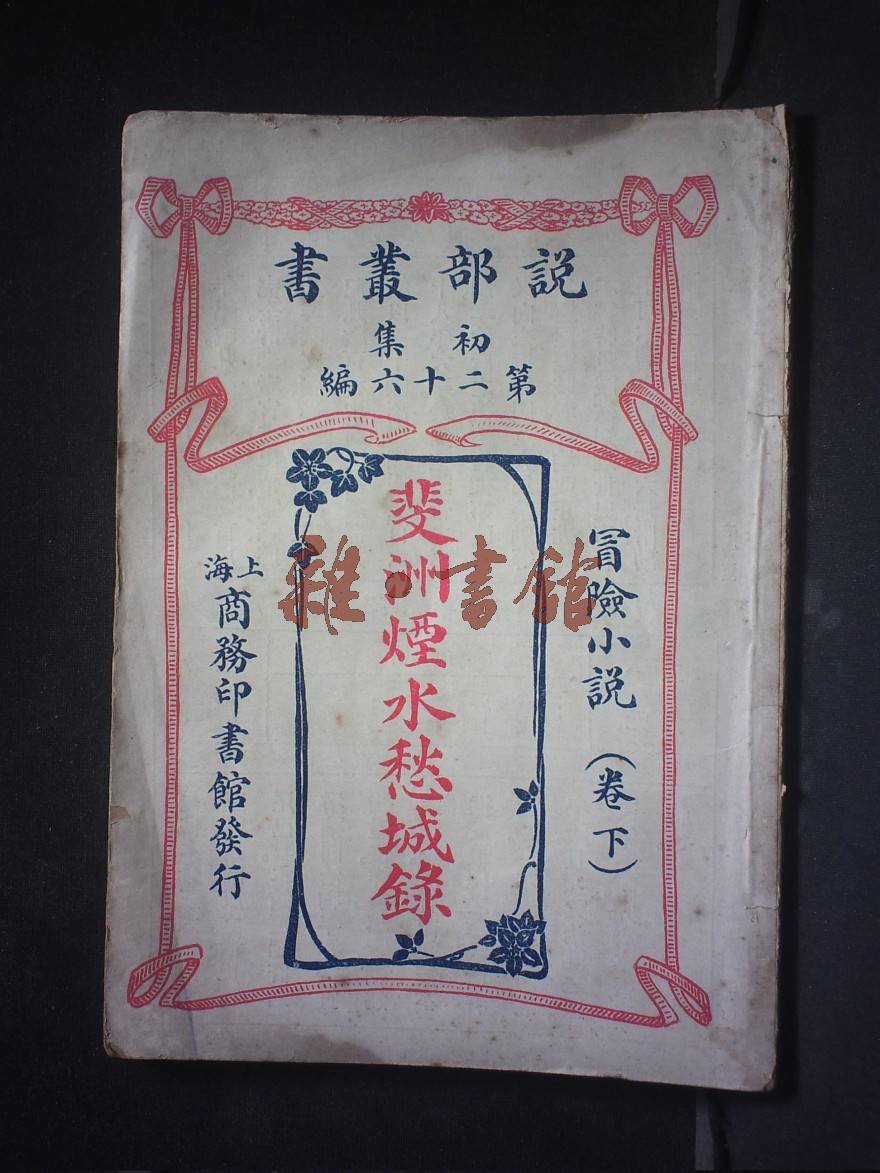 説部叢書
初集
第二十六編
冒險小説（卷下）
斐洲煙水愁城錄
上海商務印書館發行
雜·書館